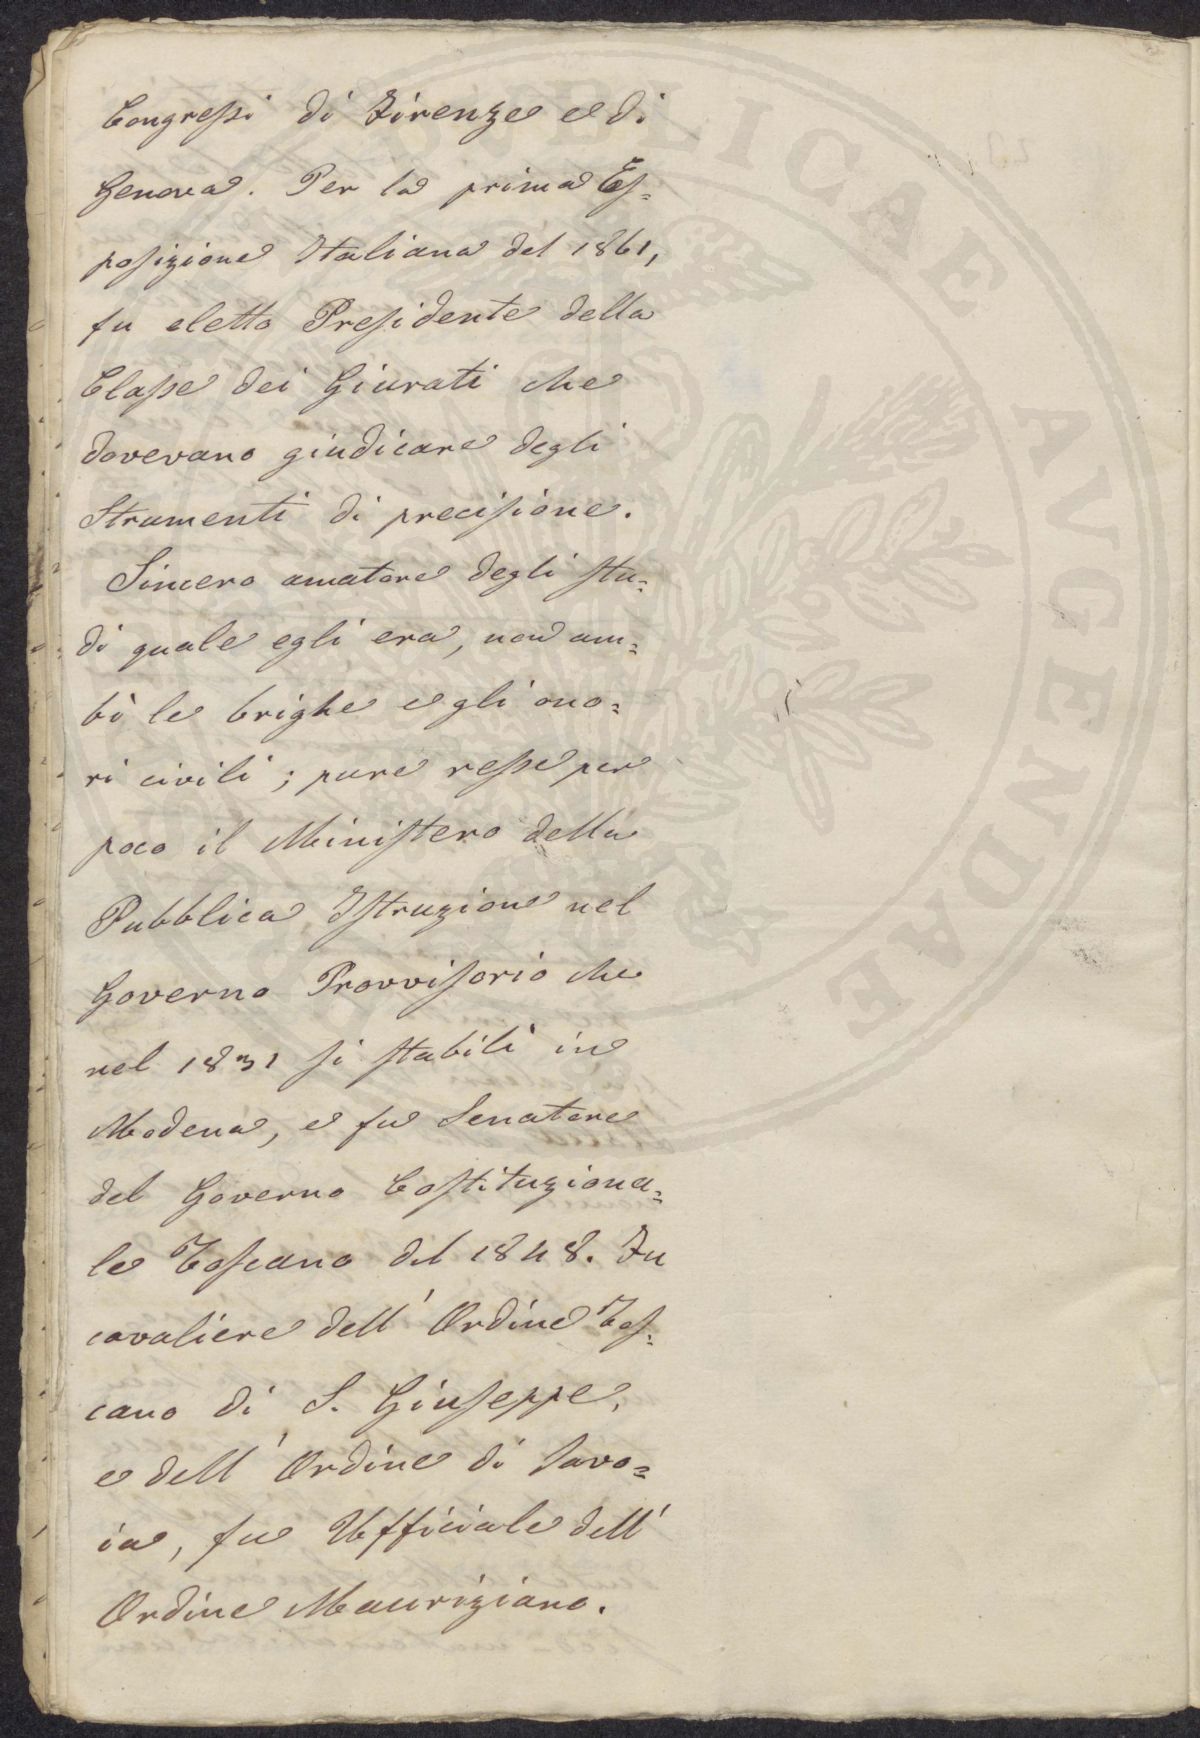 Congressi di Firenze e di
Genova. Per la prima Es=
posizione Italiana del 1861,
fu eletto Presidente della
Classe dei Giurati che
dovevano giudicare degli
Strumenti di precisione.
Sincero amatore degli stu=
di quale egli era, non am=
bì le brighe e gli ono=
ri civili; pure resse per
poco il Ministero della
Pubblica Istruzione nel
Governo Provvisorio che
nel 1831 si stabilì in
Modena, e fu Senatore
del Governo Costituziona=
le Toscano del 1848. Fu
cavaliere dell' Ordine Tos=
cano di S. Giuseppe,
e dell' Ordine di Savo=
ia, fu Ufficiale dell'
Ordine Mauriziano.
PVBLICAE AVGENDAE